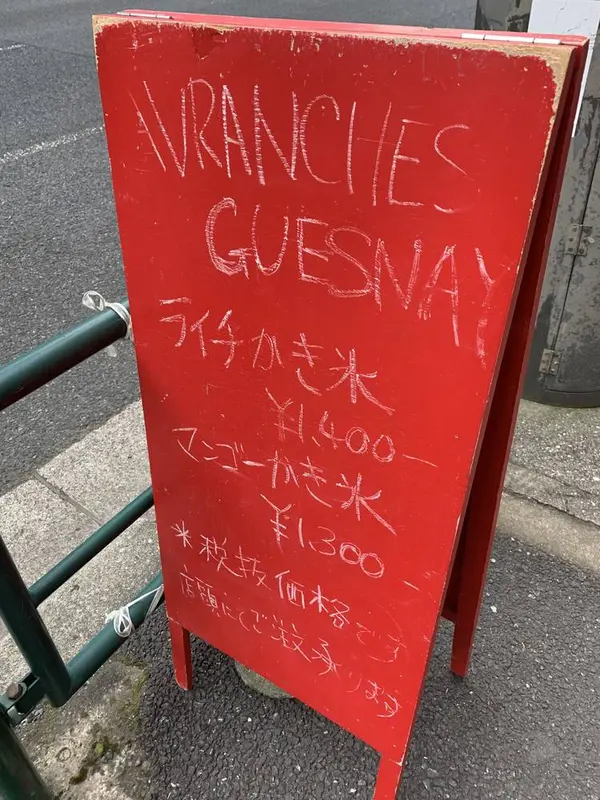 AVRANCHES
GUESNAY
ライチかき氷
¥1,400-
マンゴーかき氷
¥1300
*税抜価格です
店頭にて